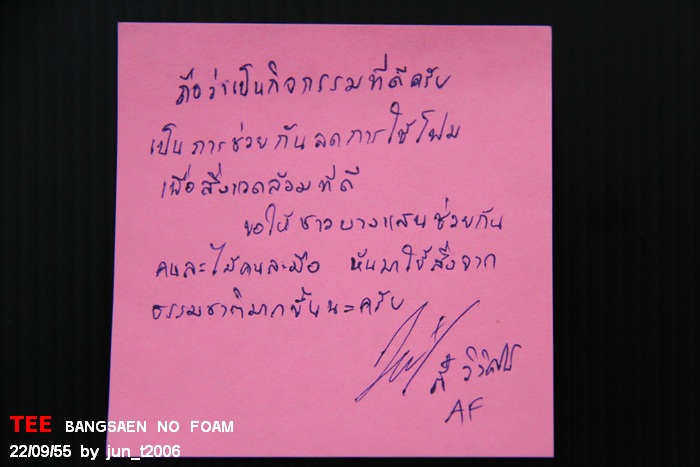 ถือว่าเป็นกิจกรรมที่ดีครับ
เป็นการช่วยกันลดการใช้โฟม
เพื่อสิ่งแวดล้อมที่ดี
ขอให้ชาวบางแสนช่วยกัน
คนละไม้คนละมือ หันมาใช้สิ่งจาก
ธรรมชาติมากขึ้นนะครับ
ตี๋ วิวิศน์
AF
TEE BANGSAEN NO FOAM
22/09/55 by jun_t2006